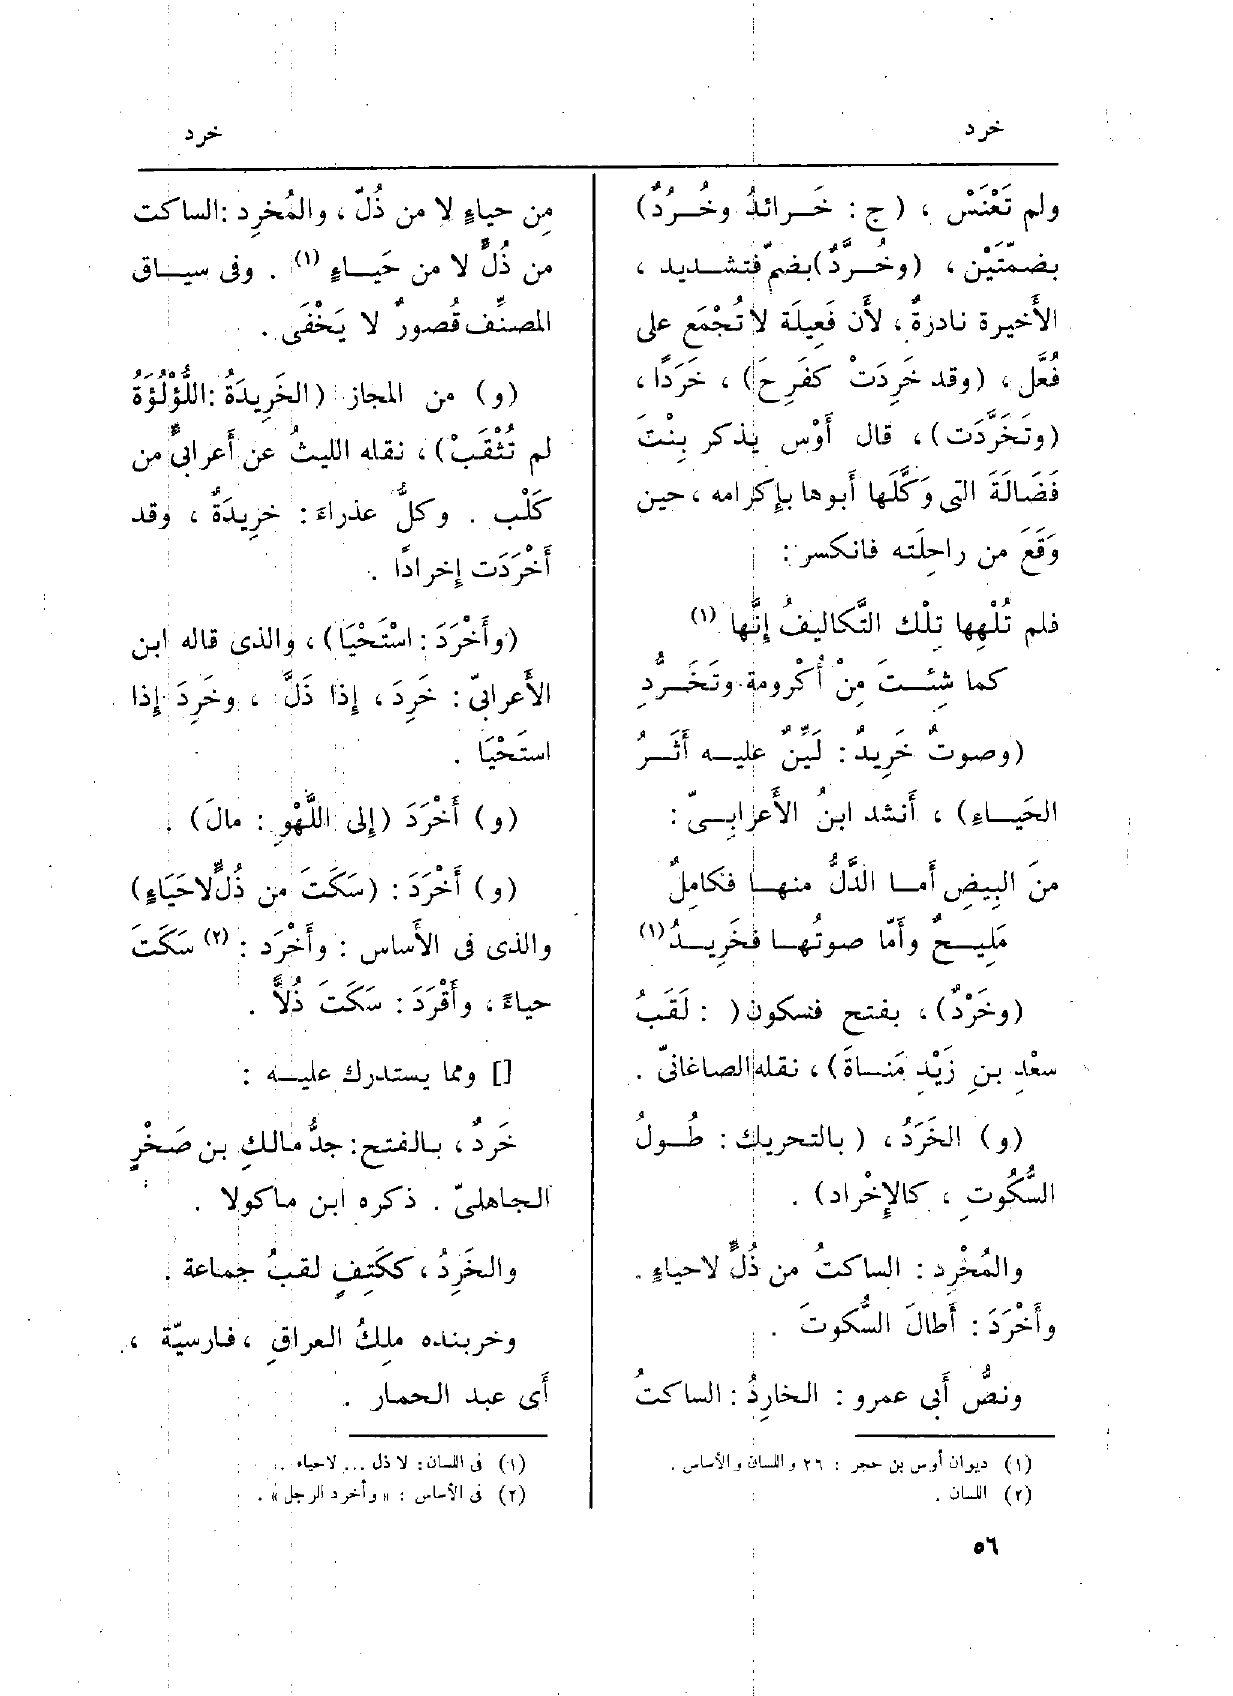 خرد
خرد
ولم تَعْنَسْ ، (ج : خَرائدُ وخُرُدٌ)
بضمّتَيْن ، (وخُرَّدٌ) بضمّ فتشديد ،
الأَخيرة نادرةٌ ، لأَن فَعِيلَة لا تُجْمَع على
فُعَّل ، (وقد خَرِدَتْ كفَرِحَ) ، خَرَدًا ،
(وتَخَرَّدَت) ، قال أَوْس يذكر بِنْتَ
فَضَالَةَ التى وَكَّلَها أَبوها بإِكرامه ، حين
وَقَعَ من راحِلَته فانكسر :
فلم تُلْهِها تِلْك التَّكاليفُ إِنَّها (١)
كما شِئْتَ مِنْ أُكْرومة وتَخَرُّدِ
(وصوتٌ خَرِيدٌ : لَيِّنٌ عليه أَثَرُ
الحَيَاءِ) ، أَنشد ابنُ الأَعرابِىّ :
منَ البِيضِ أَما الدَّلُّ منها فكامِلٌ
مَلِيحٌ وأَمّا صوتُها فخَرِيدُ (١)
(وخَرْدٌ) ، بفتح فسكون( : لَقَبُ
سعْدِ بنِ زَيْدِ مَناةَ) ، نقله الصاغانىّ .
(و) الخَرَدُ ، ( بالتحريك : طُولُ
السُّكُوتِ ، كالإِخْراد) .
والمُخْرِد : الساكتُ من ذُلٍّ لا حياءٍ .
وأَخْرَدَ : أَطالَ السُّكوتَ .
ونصُّ أَبى عمرو : الخارِدُ : الساكتُ
(١) ديوان أوس بن حجر : ٢٦ واللسان والأساس .
(٢) اللسان .
من حياءٍ لا من ذُلّ ، والمُخرِد : الساكت
من ذُلٍّ لا من حَيَاءٍ (١) . وفى سياق
المصنِّف قُصورٌ لا يَخْفَى .
(و) من المجاز (الخَرِيدَةُ : اللُّؤْلُؤَةُ
لم تُثْقَبْ) ، نقله الليثُ عن أَعرابىٍّ من
كَلْب . وكلُّ عذراءَ : خريدَةٌ ، وقد
أَخْرَدَت إِخرادًا .
(وأَخْرَدَ : اسْتَحْيَا) ، والذى قاله ابن
الأَعرابىّ : خَرِدَ ، إِذا ذَلَّ ، وخَرِدَ إِذا
استَحْيَا .
(و) أَخْرَدَ (إِلى اللَّهْوِ : مالَ) .
(و) أَخْرَدَ : (سَكَتَ من ذُلٍّ لا حَيَاءٍ)
والذى فى الأَساس : وأَخْرَد : (٢) سَكَتَ
حياءً ، وأَقْرَدَ : سَكَتَ ذُلاًّ .
[] ومما يستدرك عليه :
خَردٌ ، بالفتح : جدُّ مالكِ بن صَخْرٍ
الجاهلىّ . ذكره ابن ماكولا .
والخَرِدُ ، ككَتِفٍ لقبُ جماعة .
وخربنده ملِكُ العراقِ ، فارسيّة ،
أَى عبد الحمار .
(١) فى اللسان : لا ذل ... لا حياء .
(٢) فى الأساس : «وأخرد الرجل» .
٥٦